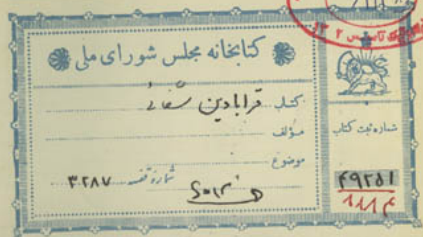 کتابخانه مجلس شورای ملی
کتاب قرابادین شفائی
مؤلف
موضوع
شماره قفسه ۳۲۸۷
شماره ثبت کتاب
۴۹۲۵۱